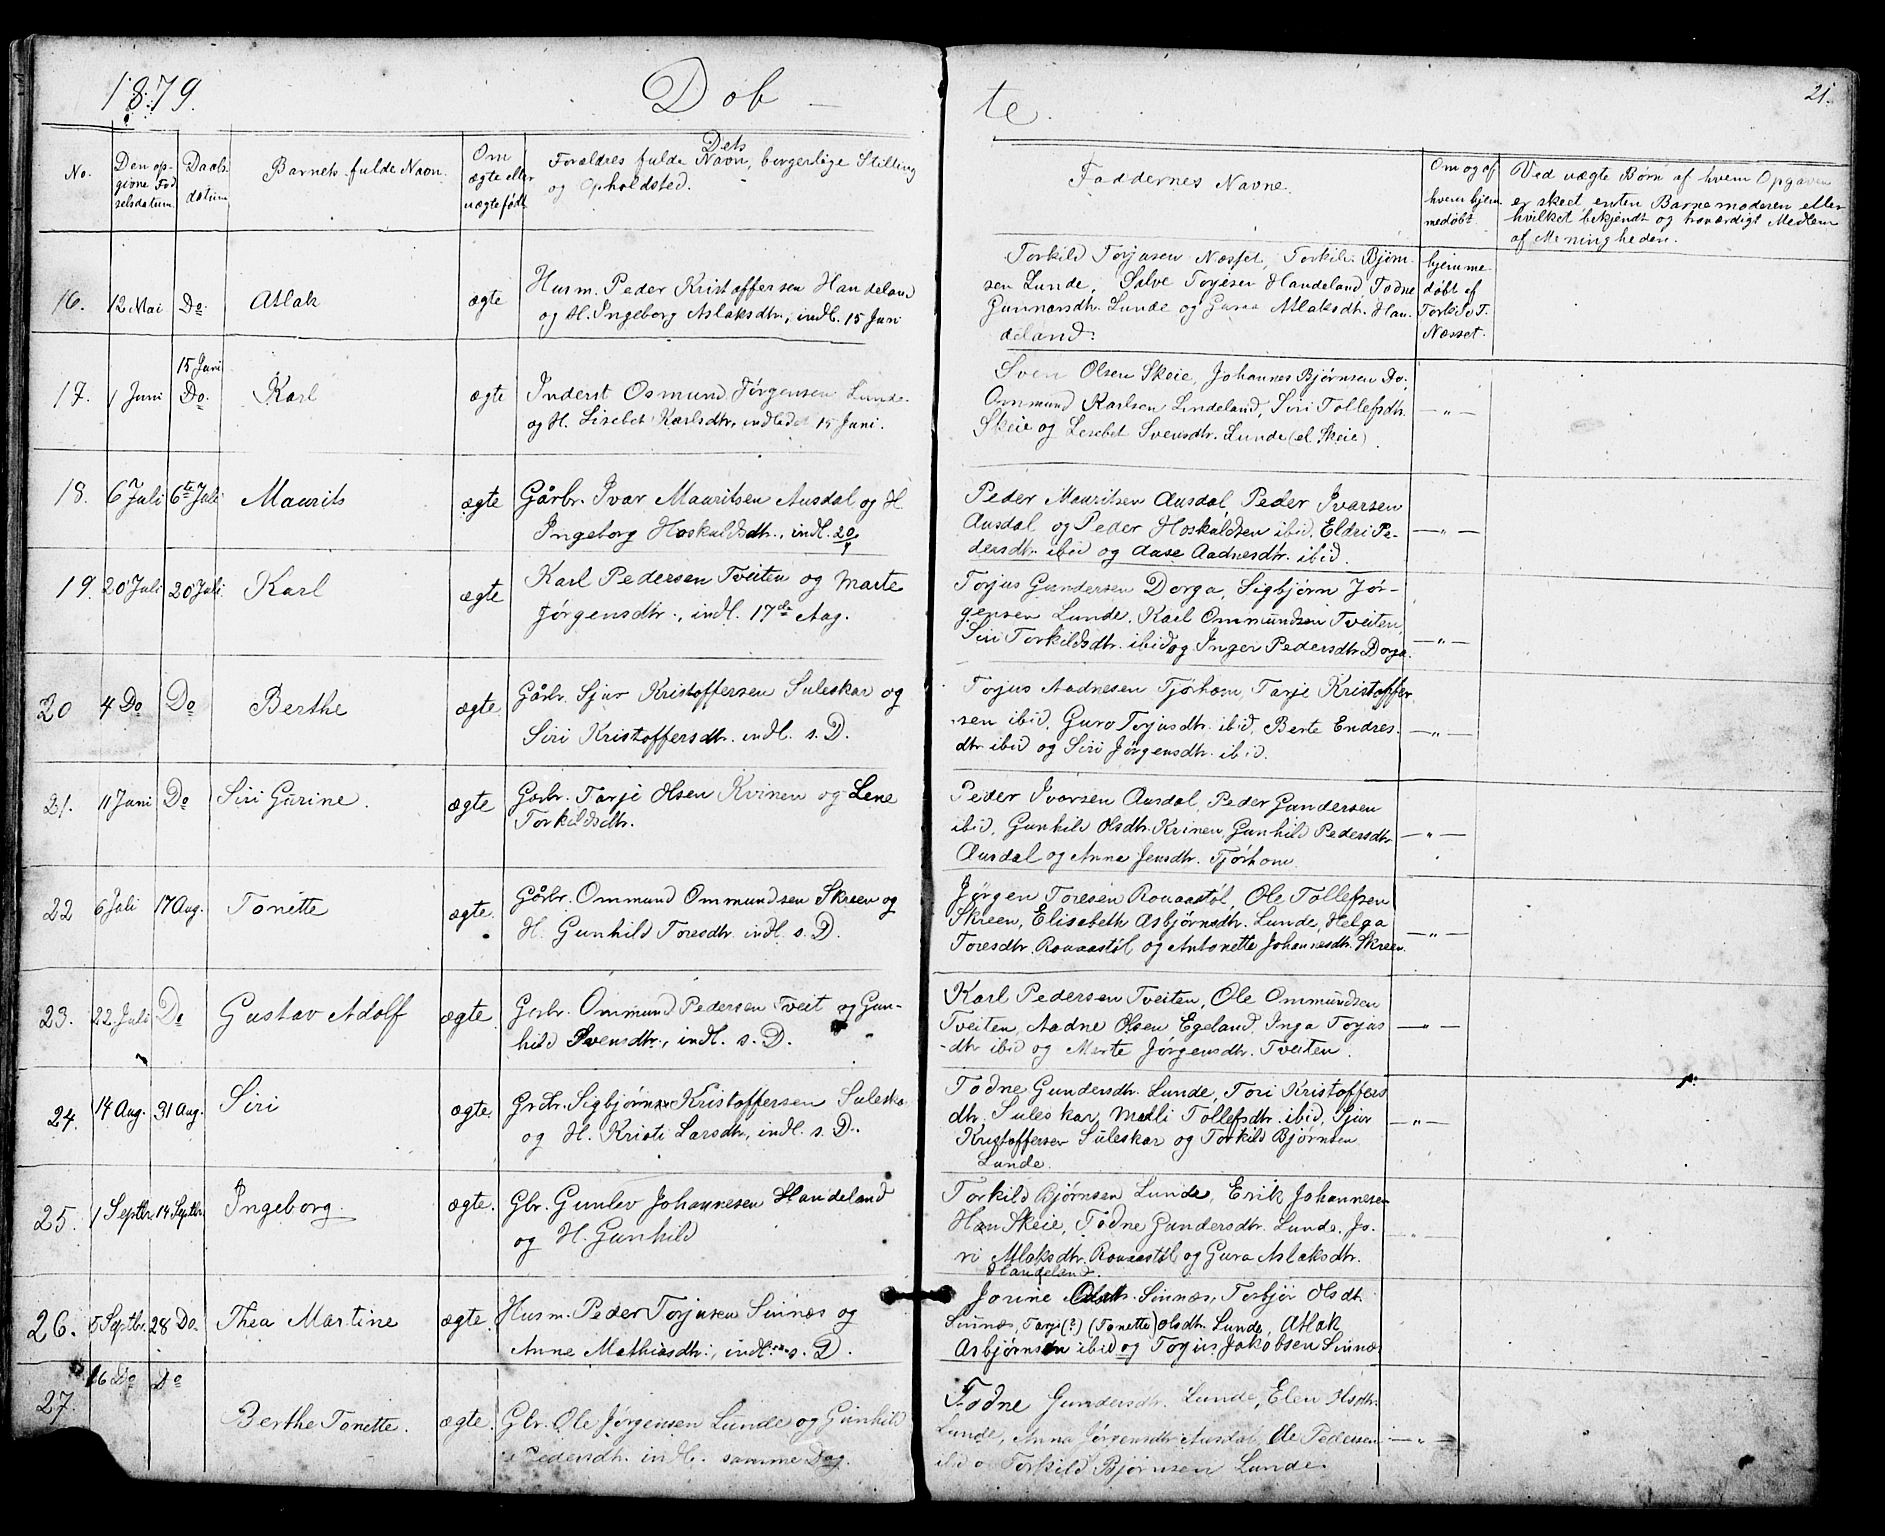 1879.
Døb-
No.
Den op-
givne Fød
selsdatum
Daabs
datum
Barnets fulde Navn.
Om
ægte eller
uægte født.
Dets
Forældres fulde Navn, borgerlige Stilling
og Opholdsted.
16.
12 Mai
Do.
Aslak
ægte
Husm. Peder Kristoffersen Handeland
og H. Ingeborg Aslaksdtr., indl. 15 Juni
17.
1 Juni
15 Juni
Do.
Karl
ægte
Inderst Osmund Jørgensen Lunde
og H. Lisebet Karlsdtr, indledet 15 Juni.
18.
6 Juli
6te Juli
Maurits
ægte
Gårbr. Ivar Mauritsen Ausdal og H.
Ingeborg Hoskuldsdtr., indl. 20/
19.
20 Juli
20 Juli
Karl
ægte
Karl Pedersen Tveiten og Marte
Jørgensdtr., indl. 17de Aug.
20
4 Do
Do
Berthe
ægte.
Gårbr. Sjur Kristoffersen Suleskar og
Siri Kristoffersdtr. indl. s. D.
21.
11 Juni
Do
Siri Gurine.
ægte
Gårbr. Tarje Olsen Kvinen og Lene
Torkildsdtr.
22
6 Juli
17 Aug.
Tonette
ægte.
Gårbr. Ommund Ommundsen Skreen og
H. Gunhild Toresdtr. indl. s. D.
23.
22. Juli
Do
Gustav Adolf
ægte.
Grbr. Ommund Pedersen Tveit og Gun-
hild Svensdtr., indl. s. D.
24.
14 Aug.
31 Aug.
Siri
ægte.
Grbr. Sigbjørn Kristoffersen Suleska
og H. Kristi Larsdtr, indl. s. D.
25.
1 Septbr.
14 Septbr.
Ingeborg.
ægte.
Gbr. Gunlev Johannesen Handeland
og H. Gunhild
26.
5 Septbr.
28 Do.
Thea Martine
ægte.
Husm. Peder Torjusen Sinnes og
Anne Mathiasdtr., indl. s. D.
27.
16 Do
Do
Berthe Tonette.
ægte.
Gbr. Ole Jørgensen Lunde og Gunhild
Pedersdtr. indl. samme Dag.
te.
21.
Faddernes Navne.
Om og af
hvem hjem
medøbt.
Ved uægte Børn af hvem Opgaven
er skeet, enten Barnemoderen eller
hvilket bekjendt og troværdigt Medlem
af Menigheden.
Torkild Torjusen Nesset, Torkild Bjørn-
sen Lunde, Salve Torjesen Handeland, Todne
Gunnarsdtr. Lunde og Guroa Aslaksdtr. Han-
deland.
hjemme-
døbt af
Torkild T.
Nesset.
Sven Olsen Skeie, Johannes Bjørnsen Do.
Ommund Karlsen Lindeland, Siri Tollefsdtr.
Skeie og Lesebet Svensdtr. Lunde (el. Skeie).
— " —
Peder Mauritsen Ausdal, Peder Ivarsen
Ausdal, og Peder Hoskuldsen ibid, Eldri Pe-
dersdtr. ibid og Aase Aadnesdtr. ibid.
— " —
Torjus Gundersen Dorga, Sigbjørn Jør-
gensen Lunde, Karl Ommundsen Tveiten,
Siri Torkildsdtr. ibid og Inger Pedersdtr. Dorga.
— " —
Torjus Aadnesen Tjørhom, Tarje Kristoffer
sen ibid, Guro Torjusdtr. ibid, Berte Endres-
dtr ibid og Siri Jørgensdtr. ibid.
— " —
Peder Ivarsen Ausdal, Peder Gundersen
ibid, Gunhild Olsdtr. Kvinen, Gunhild Pedersdtr.
Ausdal og Anna Jensdtr. Tjørhom
— " —
Jørgen Toresen Rouaastøl, Ole Tollefsen
Skreen, Elisabeth Asbjørnsdtr. Lunde, Helga
Toresdtr. Rouaastøl og Antonette Johannesdtr. Skreen
— " —
Karl Pedersen Tveiten, Ole Ommundsen
Tveiten, Aadne Olsen Egeland, Inga Torjus
-dtr ibid og Marte Jørgensdtr. Tveiten.
— " —
Todne Gundersdtr. Lunde, Tori Kristoffers
dtr. Suleskar, Malli Tollefsdtr. ibid, Sjur
Kristoffersen Suleskar og Torkild Bjørnsen
Lunde.
— " —
Torkild Bjørnsen Lunde, Erik Johannesen
Skeie, Todne Gundersdtr. Lunde, Jo-
ri Aslaksdtr. Rouaastøl og Gura Aslaksdtr.
Handeland.
— " —
Jorine Olsdtr. Sinnes, Torbjør Olsdtr
Sinnes, Tarje (?) (Tonette) Olsdtr. Lunde, Aslak
Asbjørnsen ibid og Torjus Jakobsen Sinnes
Todne Gundersdtr. Lunde, Elen Olsdtr.
Lunde, Anna Jørgensdtr Ausdal, Ole Pedersen
ibid o Torkild Bjørnsen Lunde.
— " —